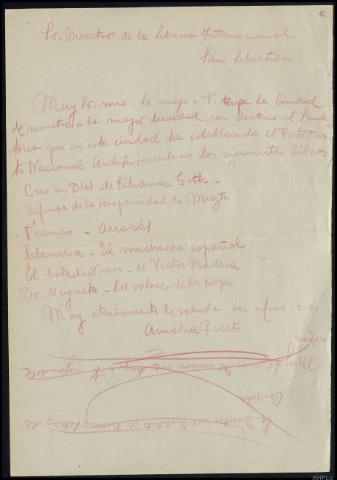 6
Sr. Director de la Libreria Internacional
San Sebastian
Muy Sr. mio: le ruego a V. tenga la bondad
de remitir a la mayor brevedad con destino al Sana
torio que en esta ciudad ha establecido el Patrona
to Nacional Antituberculoso los siguientes libros
Creo en Dios de Tihamer Toth.
Defensa de la Hispanidad, de Maeztu
Franco - Arrarás
Salaverria - El muchacho español
El Estado Nuevo - de Victor Pradera
Dr. - los valores de la Raza
Muy atentamente le saluda su afma s.s.
Amalia Prieto
AHPLu